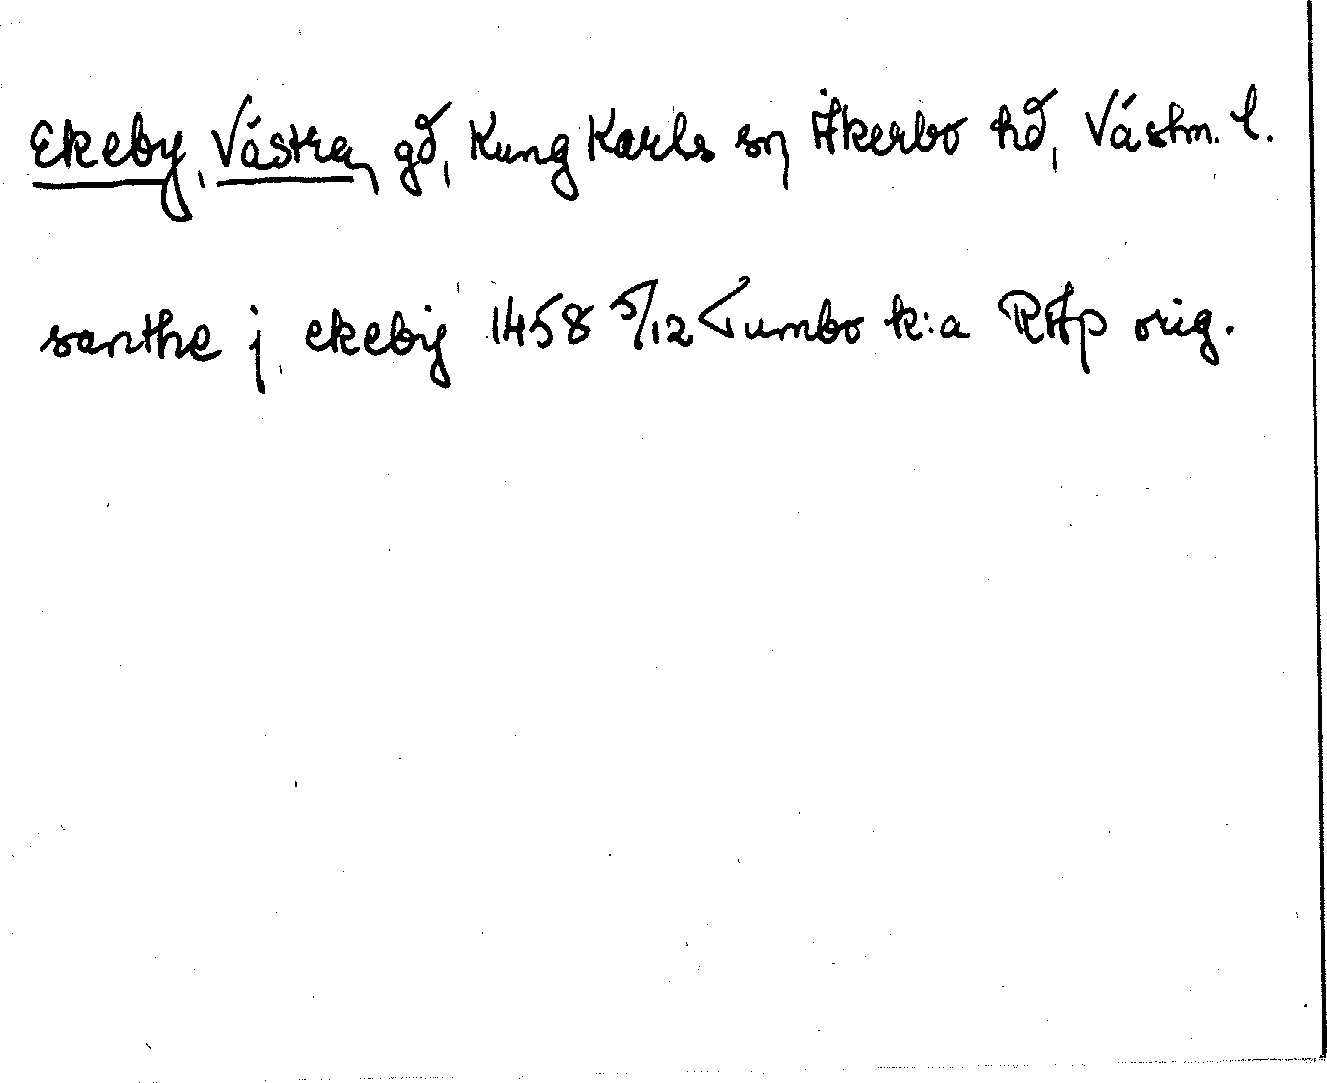 Ekeby, Västra, gd, Kung Karls sn Åkerbo hd, Västm. l.
santhe j ekeby 1458 5/12 Tumbo k:a RAp orig.